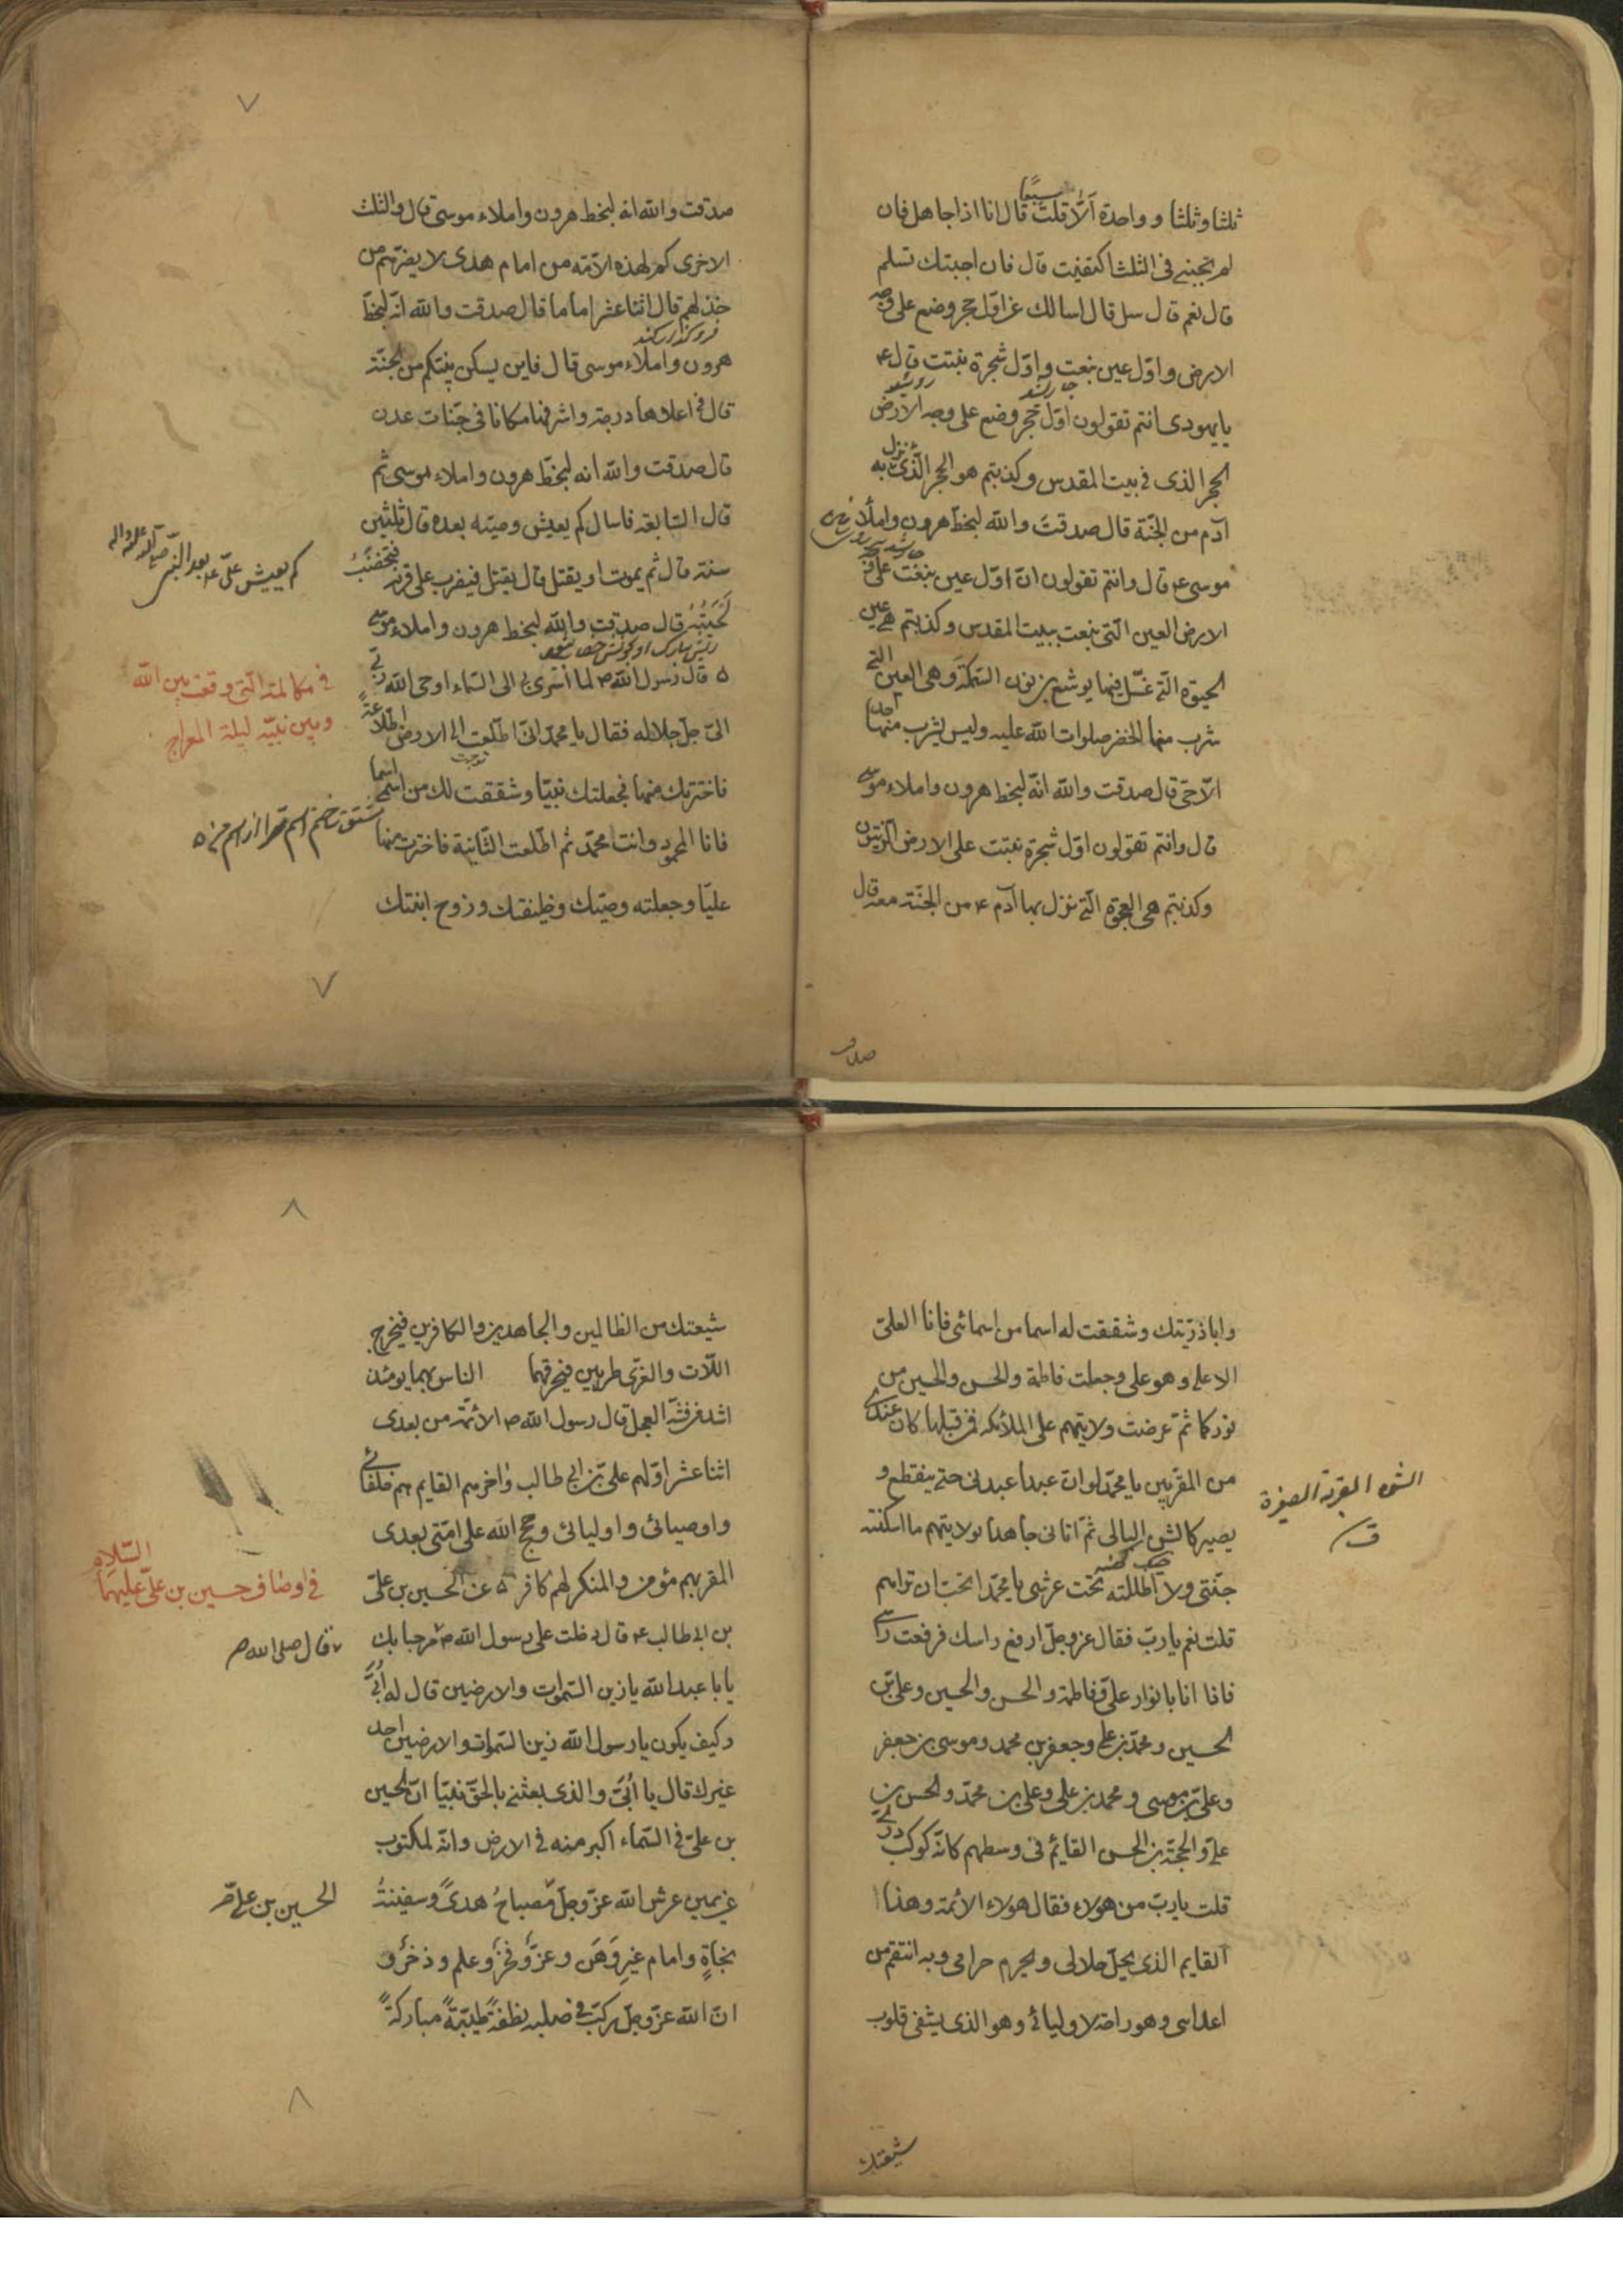 ثلثا وثلثا و واحدة ألّا قلت سبعًا قال انا اذا جاهل فان
لم تجبنى فى الثلث اكتفيت قال فان اجبتك تسلم
قال نعم قال سل قال اسالك عن اوّل حجر وضع على وجه
الارض و اوّل عين نبعت و اوّل شجرة نبتت قال ع
يا يهودى انتم تقولون اوّل حجر وضع على وجه الارض
الحجر الذى فى بيت المقدس وكذبتم هو الحجر الّذى نزل به
آدم من الجنّة قال صدقت والله لبخط هرون واملاء
موسى ع قال وانتم تقولون انّ اوّل عين نبعت على وجه
الارض العين الّتى نبعت ببيت المقدس وكذبتم هى عين
الحيوة الّتى غسّل فيها يوشع بن نون السّمكة وهى العين التى
شرب منها الخضر صلوات الله عليه وليس يشرب منها احد
الّا حىّ قال صدقت والله انّه لبخط هرون واملاء موسى
قال وانتم تقولون اوّل شجرة نبتت على الارض الزيتون
وكذبتم هى العجوة الّتى نزل بها آدم ع من الجنّة معه قال
صدقت
صدقت والله انه لبخط هرون واملاء موسى قال والثلث
الاخرى كم لهذه الأمّة من امام هدى لا يضرّهم من
خذلهم قال اثنا عشر اماما قال صدقت والله انّه لبخطّ
هرون واملاء موسى قال فاين يسكن نبيّكم من الجنّة
قال فى اعلاها درجة واشرفها مكانا فى جنّات عدن
قال صدقت والله انه لبخطّ هرون واملاء موسى ثم
قال السّابعة فاسال كم يعيش وصيّه بعده قال ثلثين
سنة قال ثم يموت او يقتل قال يقتل فيضرب على قرنه فتخضب
لحيته قال صدقت والله لبخط هرون واملاء موسى
قال رسول الله ص لما اسرى بى الى السّماء اوحى الله ربّى
الىّ جلّ جلاله فقال يا محمّد انّى اطّلعت الى الارض اطّلاعة
فاخترتك منها فجعلتك نبيّا وشققت لك من اسمى اسما
فانا المحمود وانت محمّد ثم اطّلعت الثّانية فاخترت منها
عليّا وجعلته وصيّك وخليفتك و زوج ابنتك
كم يعيش علىّ ع بعد النّبى صلّى الله عليه واله
فى مكالمة الّتى وقعت بين الله
وبين نبيّه ليلة المعراج
وابا ذرّيّتك وشققت له اسما من اسمائى فانا العلىّ
الاعلى وهو على وجعلت فاطمة والحسن والحسين من
نوركما ثمّ عرضت ولايتهم على الملائكة فمن قبلها كان عندى
من المقرّبين يا محمّد لو انّ عبدا عبدنى حتى ينقطع و
يصير كالشن البالى ثمّ اتانى جاهدا بولايتهم ما اسكنته
جنّتى ولا اظللته تحت عرشى يا محمّد اتحبّ ان تراهم
قلت نعم يا ربّ فقال عزوجلّ ارفع راسك فرفعت راسى
فاذا انا بانوار علىّ وفاطمة والحسن والحسين وعلى بن
الحسين ومحمّد بن على وجعفر بن محمد وموسى بن جعفر
وعلىّ بن موسى ومحمد بن على وعلى بن محمّد والحسن بن
علىّ والحجّة بن الحسن القائم فى وسطهم كانّه كوكب درّى
قلت يا ربّ من هولاء فقال هولاء الأئمة وهذا
القايم الذى يحلّ حلالى ويحرم حرامى وبه انتقم من
اعدائى وهو راحة لاوليائى وهو الذى يشفى قلوب
شيعتك
الشن القربة الصغيرة
ق
شيعتك من الظالمين والجاهدين والكافرين فيخرج
اللّات والعزّى طريين فيحرقهما الناس بهما يومئذ
اشد من فتنة العجل قال رسول الله ص الأئمّة من بعدى
اثنا عشر اوّلهم علىّ بن ابى طالب واخرهم القايم هم خلفائى
واوصيائى واوليائى وحجج الله على امّتى بعدى
المقر بهم مؤمن والمنكر لهم كافر عن الحسين بن علىّ
بن ابى طالب ع قال دخلت على رسول الله ص مرحبا بك
يا با عبد الله يا زين السّموات والارضين قال له أبىّ
وكيف يكون يا رسول الله زين السّموات والارضين احد
غيرك قال يا أبىّ والذى بعثنى بالحقّ نبيّا انّ الحسين
بن علىّ فى السّماء اكبر منه فى الارض وانّه لمكتوب
عن يمين عرش الله عزّوجلّ مصباحُ هدىً وسفينةُ
نجاةٍ وامام غير وَهَن وعزّ وفخر وعلم وذخر و
انّ الله عزّوجلّ ركّب فى صلبه نطفةً طيّبةً مباركةً
فى اوصاف حسين بن علىّ عليهما
السّلام
فقال صلى الله ص
الحسين بن على